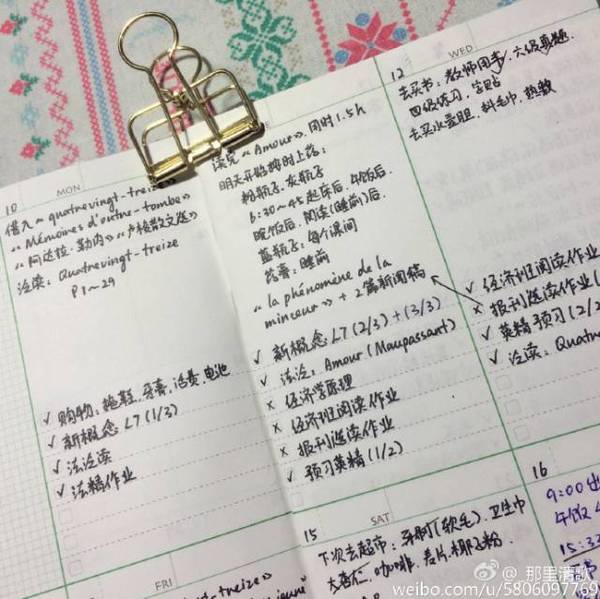 MON
10
借入《quatrevingt-treize》
《Mémoires d'outre-tombe》
《阿达拉·勒内》《卢梭散文选》
泛读: Quatrevingt-treize
P1~29
✓ 购物: 拖鞋、牙膏、话费、电池
✓ 新概念 L7 (1/3)
✓ 法泛读
✓ 法精作业
读完《Amour》. 用时1.5h
明天开始按时上药:
棕瓶子. 灰瓶子
6:30~45起床后. 午饭后.
晚饭后. 阅读(睡前)后.
蓝瓶子: 每个课间
药膏: 睡前
《la phénomène de la
minceur》 + 2篇新闻稿
✓ 新概念 L7 (2/3) + (3/3)
✓ 法泛: Amour (Maupassant)
× 经济学原理
× 经济班阅读作业
× 报刊选读作业
✓ 预习英精 (1/2)
WED
12
去买书: 教师用书. 六级真题.
四级练习. 字帖
去买水壶胆. 抖毛巾. 热敷
✓ 经济班阅读作业
× 报刊选读作业
✓ 英精预习 (2/2
✓ 泛读: Quatre
FRI
15
SAT
下次去超市: 牙刷(软毛). 卫生巾
大杏仁. 咖啡. 麦片. 椰子粉
16
9:00 出
午饭
15:3
@那里清歌
weibo.com/u/5806097769